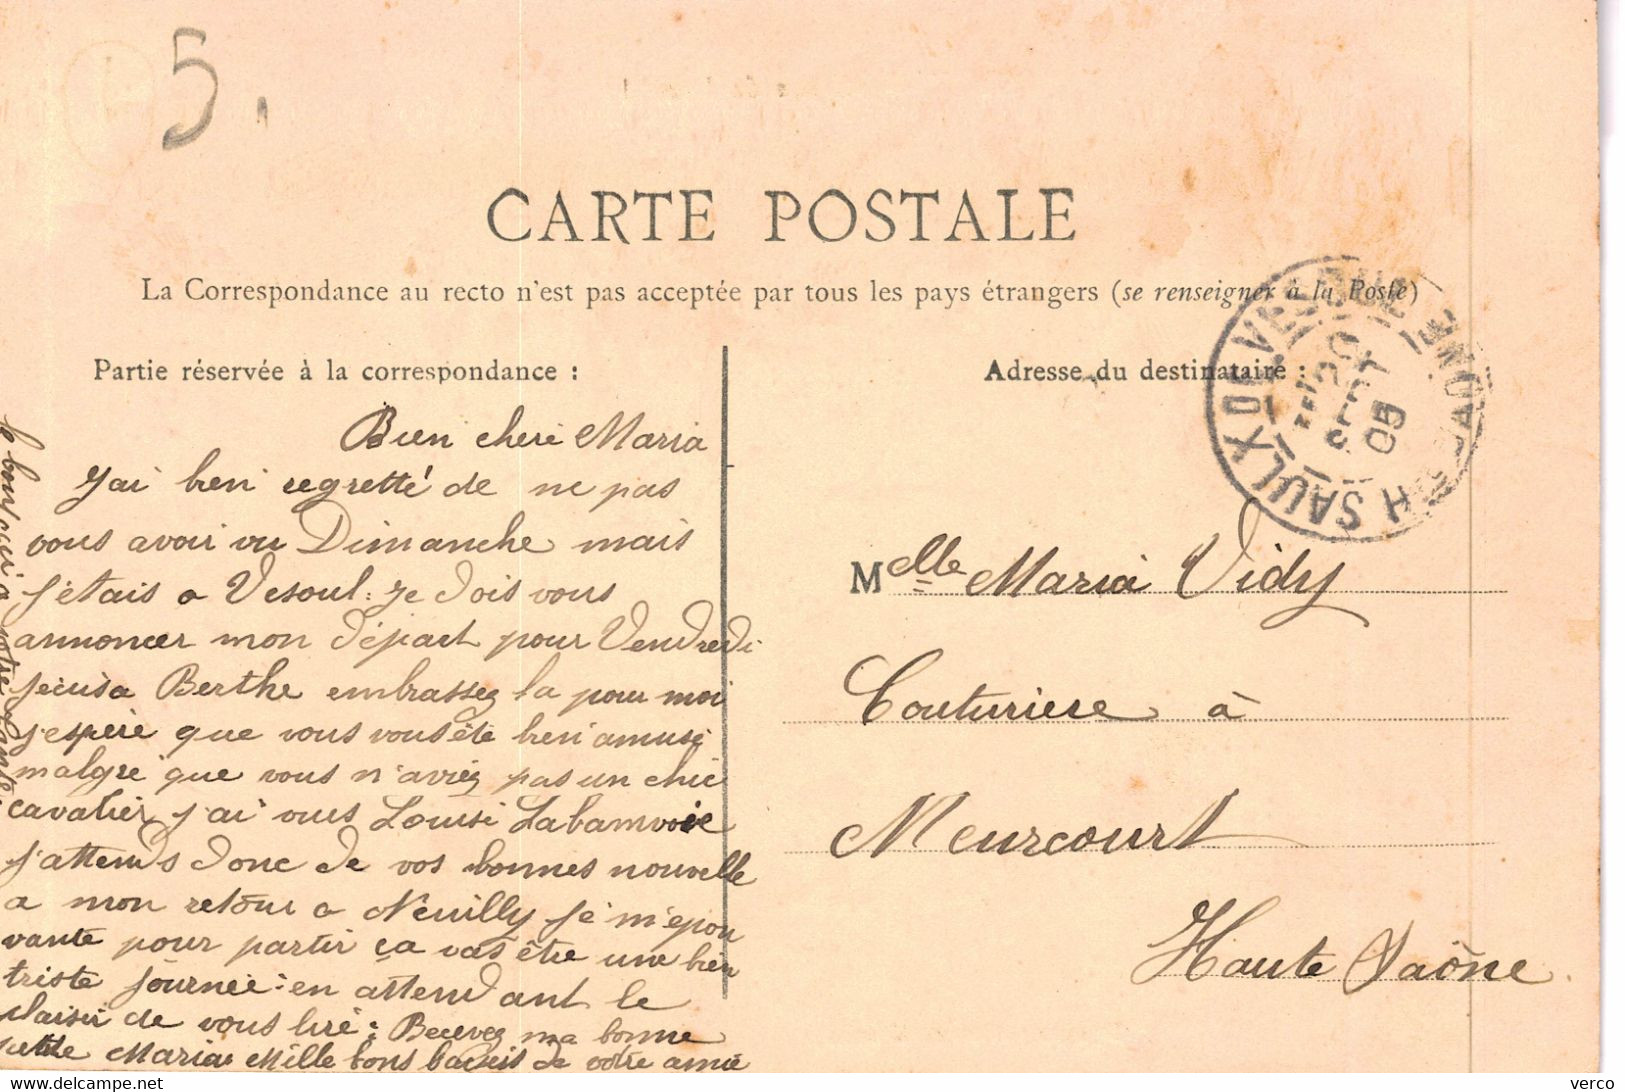 5.
CARTE POSTALE
La Correspondance au recto n'est pas acceptée par tous les pays étrangers (se renseigner à la Poste)
Partie réservée à la correspondance :
Bien cheri Maria
J'ai bien regretté de ne pas
vous avoir vu Dimanche mais
j'étais a Vesoul. je dois vous
annoncer mon départ pour Vendredi
Berthe embrassez la pour moi
j'espère que vous vous ète bien amusé
malgré que vous n'aviez pas un chic
cavalier j'ai vus Louise
j'attends donc de vos bonnes nouvelle
a mon retour a Neuilly je m'épou
vante pour partir ça vas être une bien
triste journée : en attendant le
plaisir de vous liré : Recevez ma bonne
petite Maria Mille bons baisers de votre amie
le bonjour a votre tante.
Adresse du destinataire :
Melle Maria Vidy
Couturiere à
Meurcourt
Haute Saône
SAULX DE VESOUL
20
SEPT
05
HTE SAONE
delcampe.net
verco